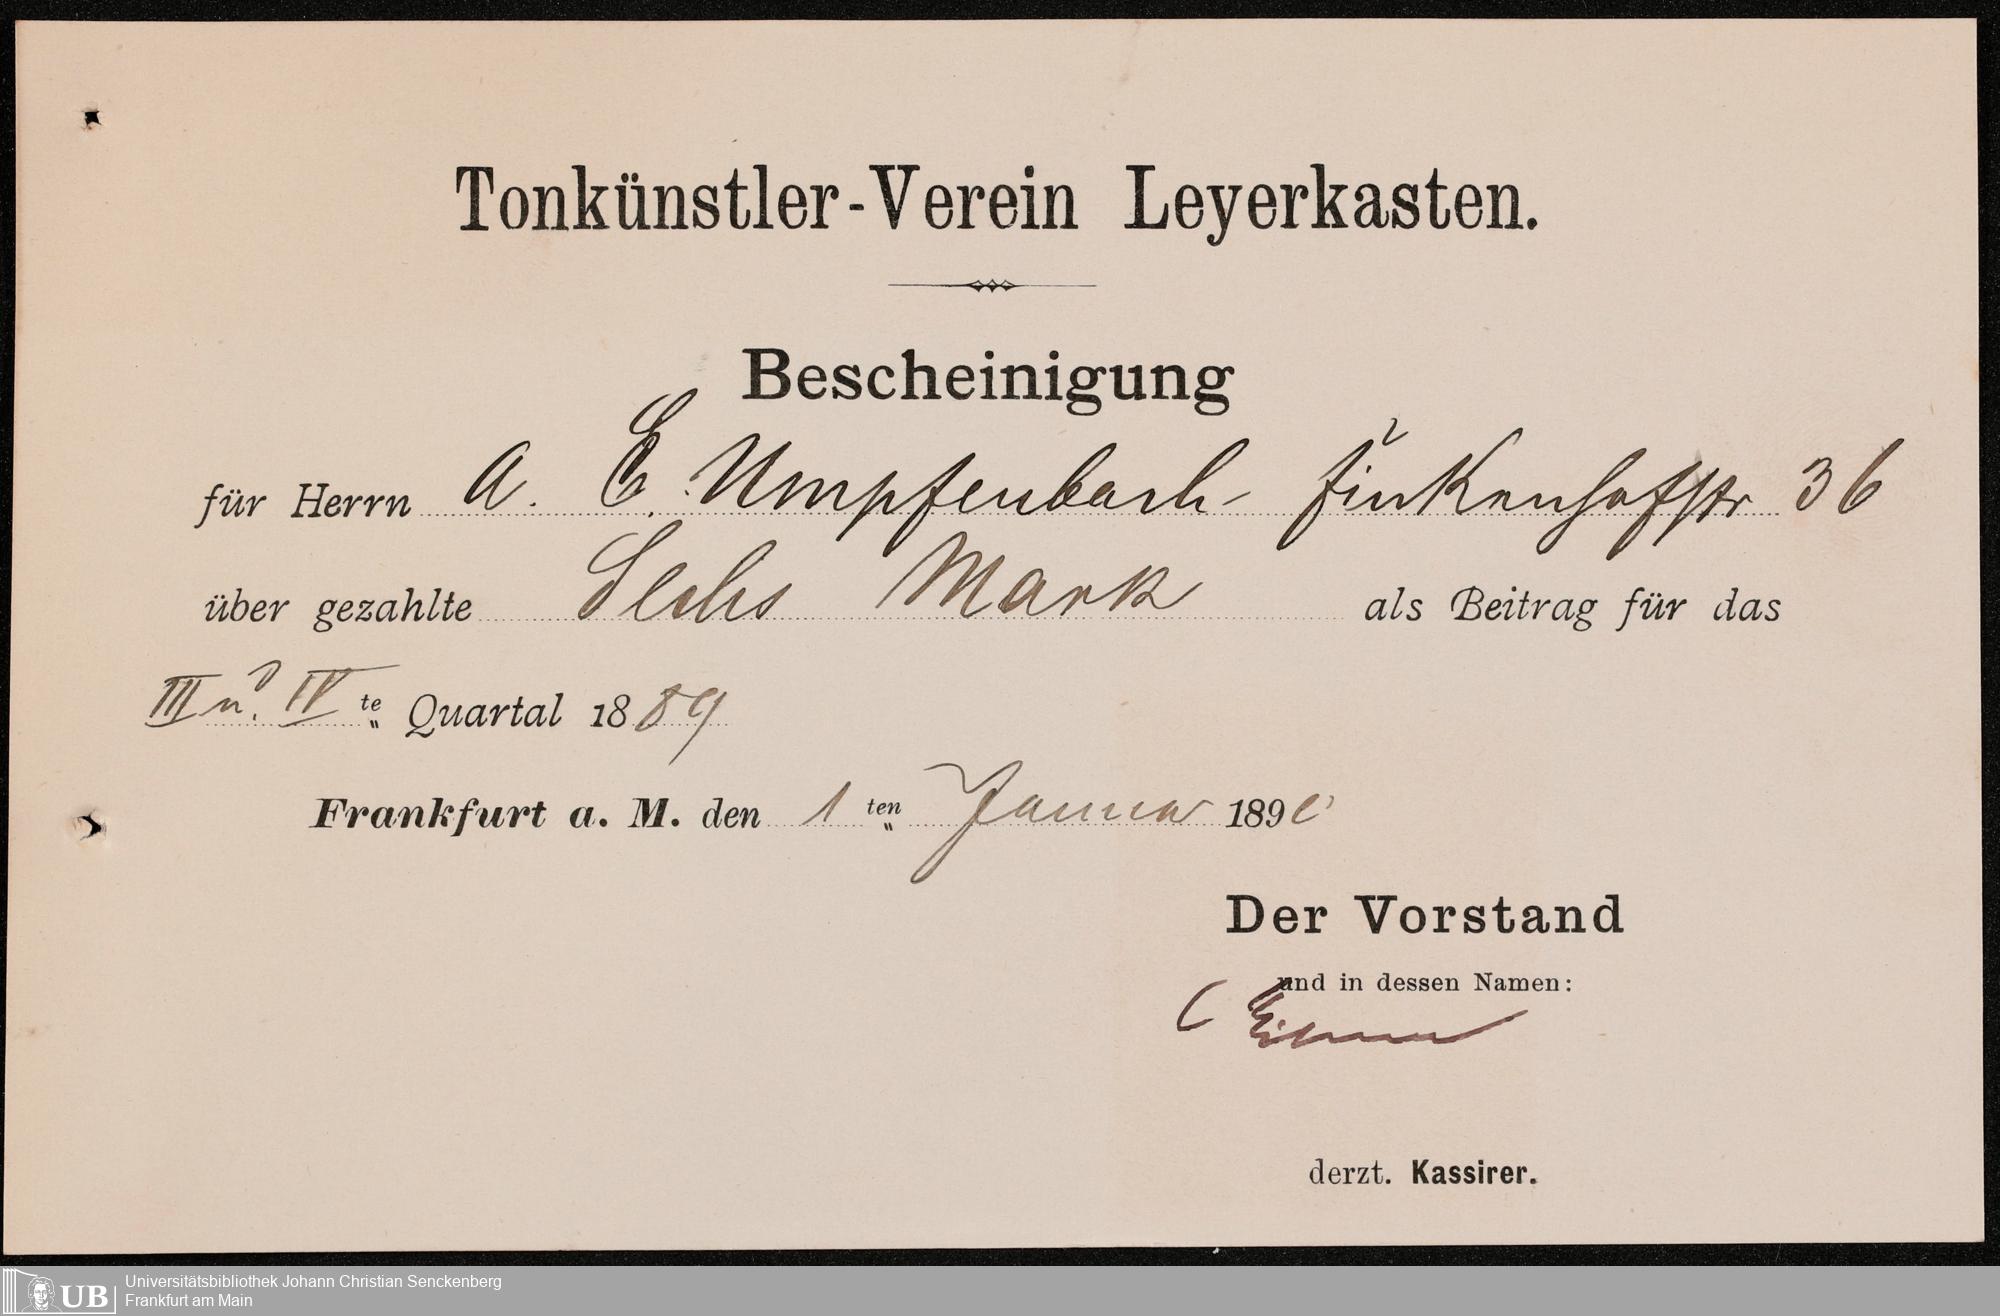 Tonkünstler-Verein Leyerkasten.
Bescheinigung
für Herrn A. E. Umpfenbach Finkenhofstr 36
über gezahlte Sechs Mark als Beitrag für das
III u. IV te Quartal 1889
Frankfurt a. M. den 1 ten Januar 1890
Der Vorstand
und in dessen Namen:
C
derzt. Kassirer.
UB Universitätsbibliothek Johann Christian Senckenberg
Frankfurt am Main